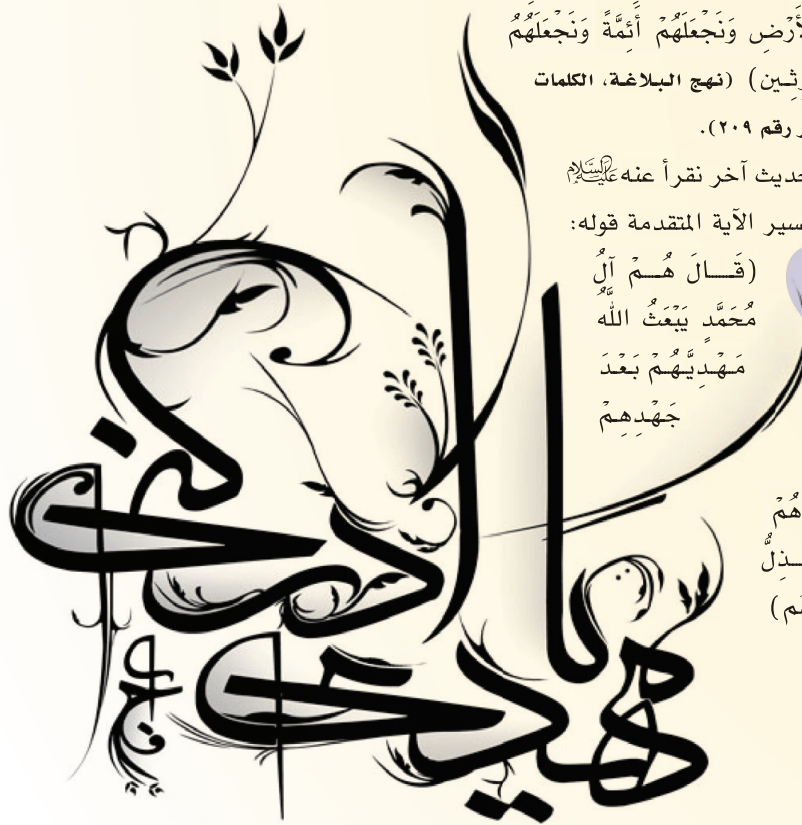 الأَرْضِ وَنَجْعَلَهُمْ أَئِمَّةً وَنَجْعَلَهُمُ
(نهج البلاغة، الكلمات
رقم ٢٠٩).
آخر نقرأ عنه عليه السلام
الآية المتقدمة قوله:
(قَـالَ هُـمْ آلُ
مُحَمَّدٍ يَبْعَثُ اللهُ
مَهْدِيَّهُمْ بَعْدَ
جَهْدِهِمْ
يا
ادركني
مهدي
عج